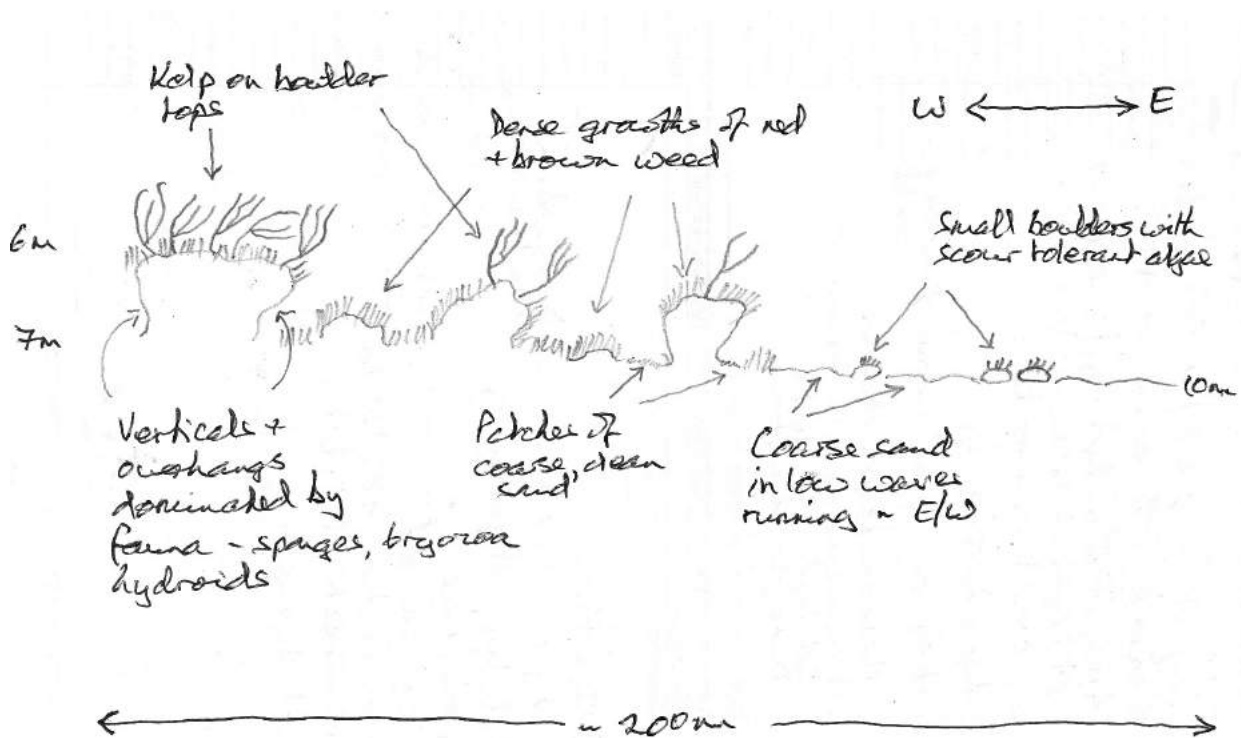 Kelp on boulder
tops
W E
Dense growths of red
+ brown weed
Small boulders with
scour tolerant algae
6m
7m
10m
Verticals +
overhangs
dominated by
fauna - sponges, bryozoa
hydroids
Patches of
coarse, clean
sand
Coarse sand
in low waves
running ~ E/W
~ 200m